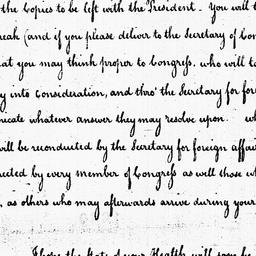 the Copies to be left with the President. You will t
eak (and if you please deliver to the Secretary of Con
at you may think proper to Congress, who will ta
y into Consideration, and thro' the Secretary for for
nicate whatever answer they may resolve upon.
will be reconducted by the Secretary for foreign affair
ected by every member of Congress as well those wh
, as others who may afterwards arrive during your
I hope the State of your Health will soon be